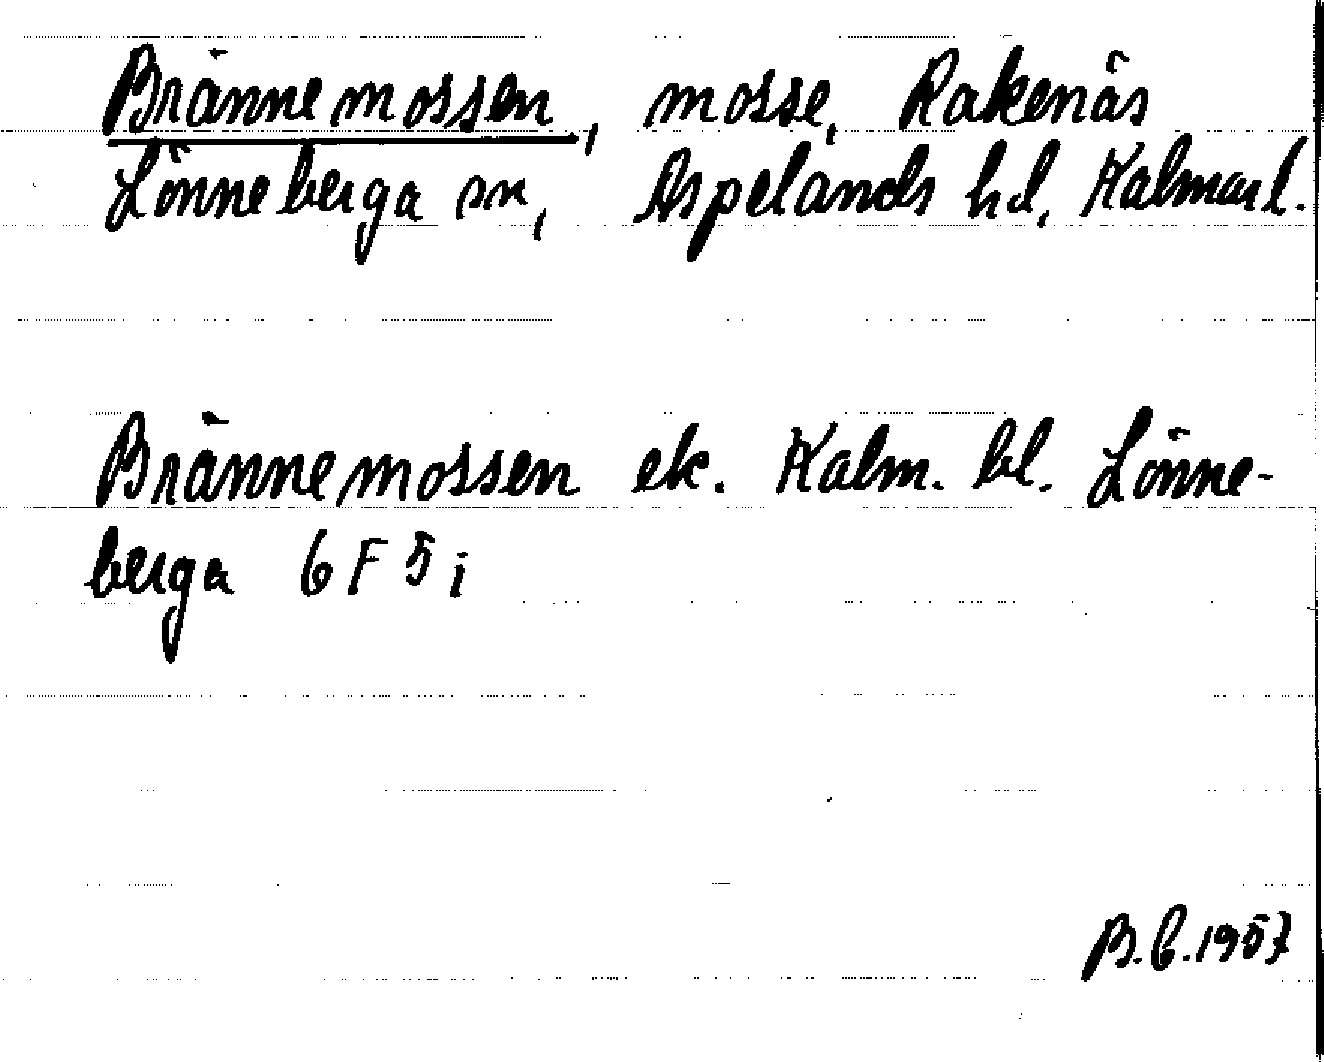 Brännemossen, mosse, Rakenäs
Lönneberga sn, Aspelands hd, Kalmar l.
Brännemossen ek. Kalm. bl. Lönne-
berga 6 F 5 i
B.C.1957